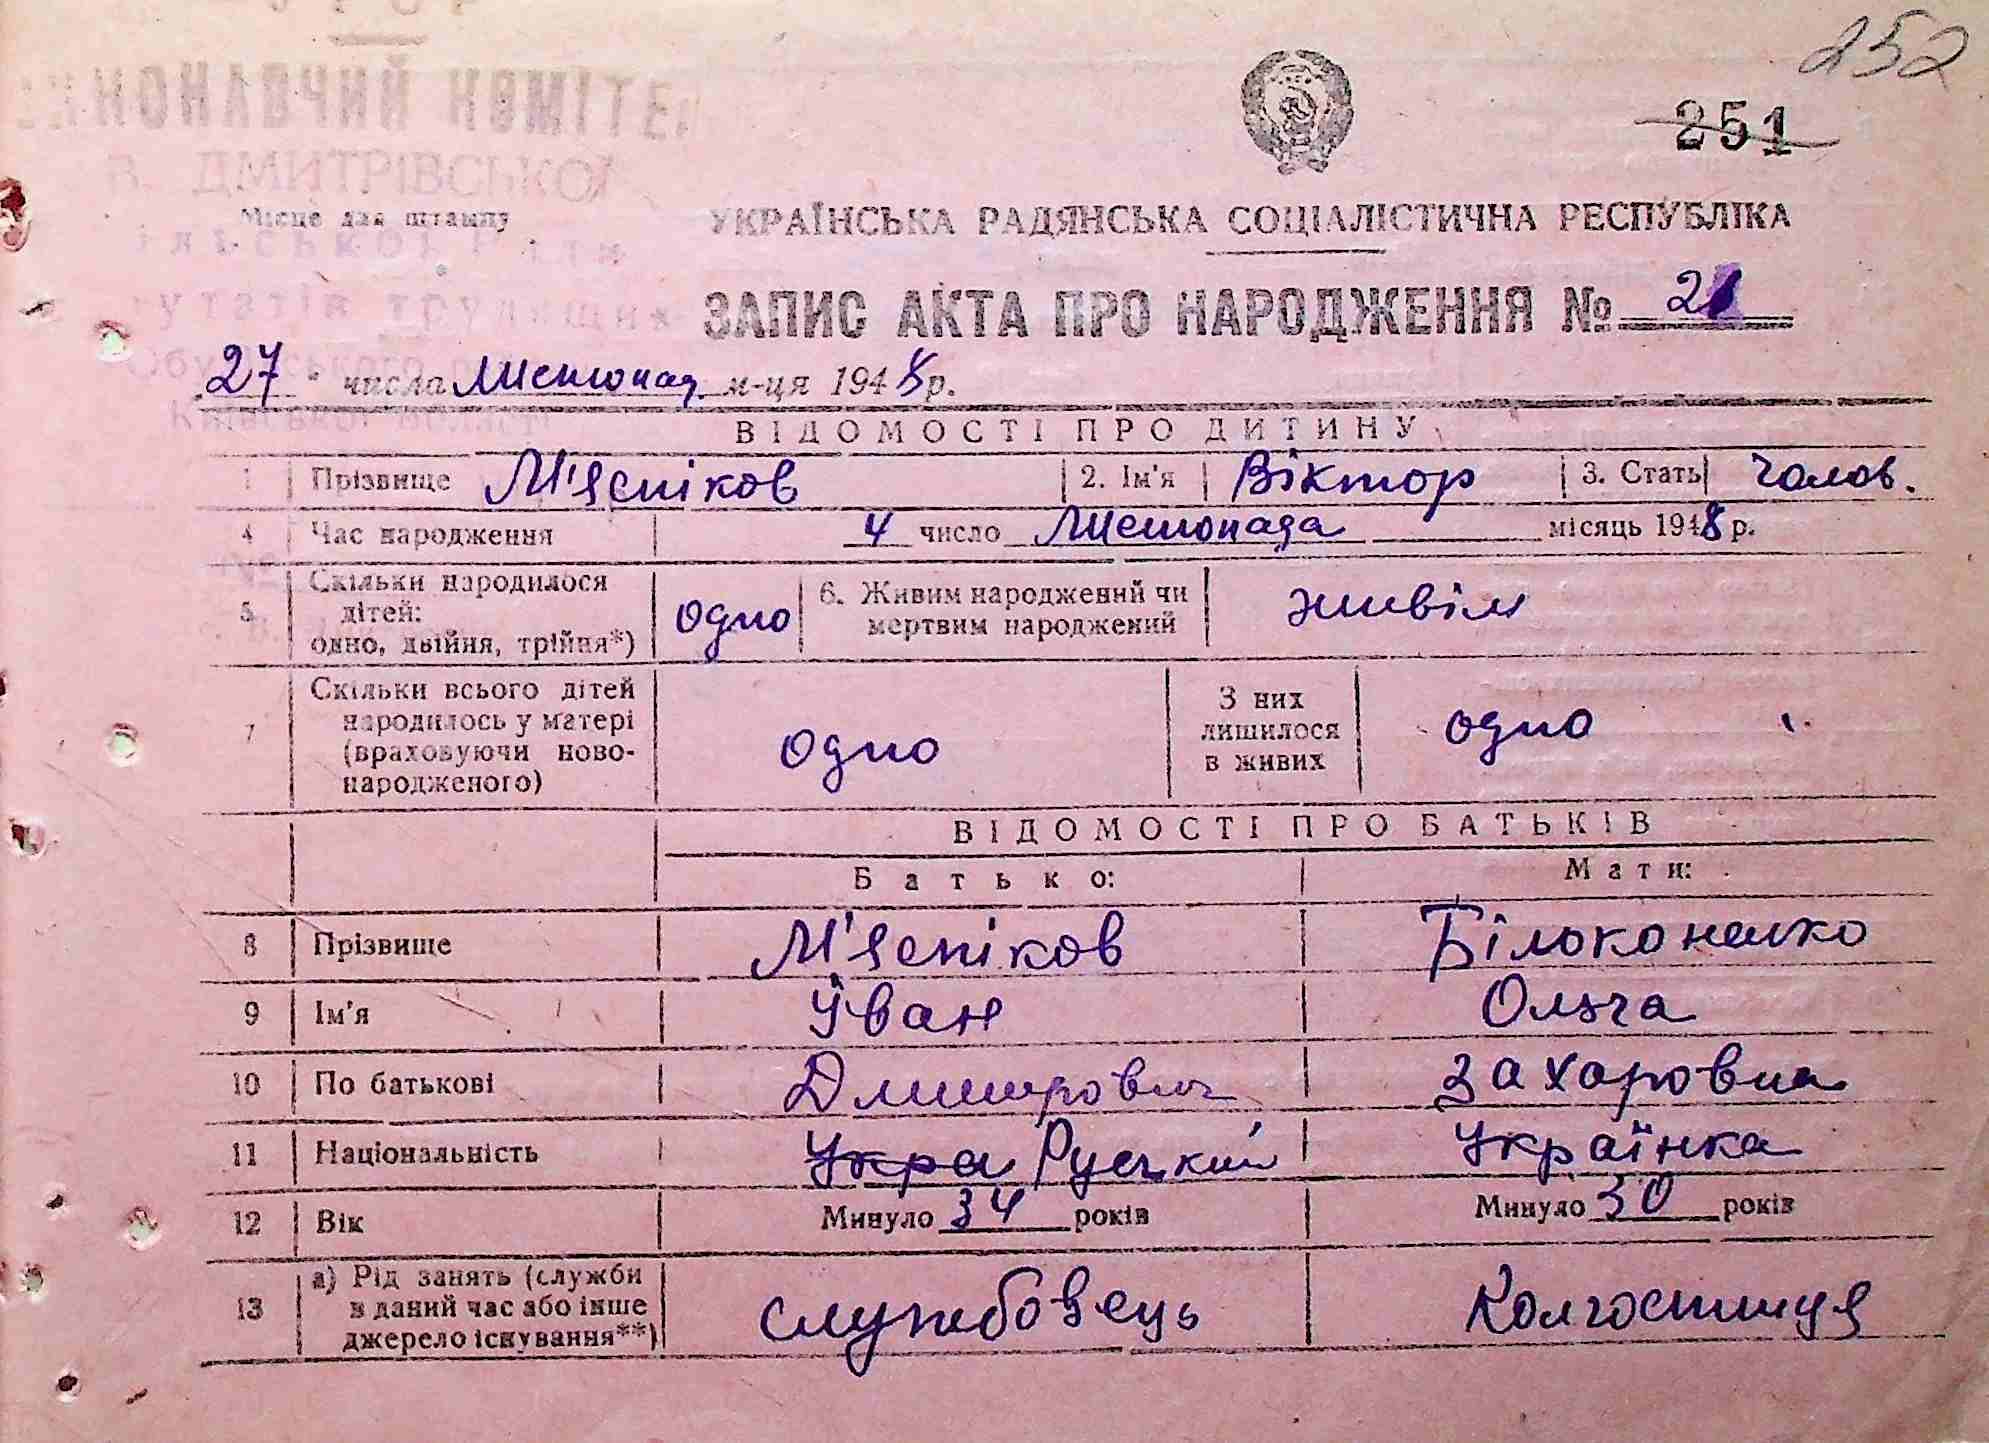 252
251
ВИКОНАВЧИЙ КОМІТЕТ
В. ДМИТРІВСЬКОЇ
Місце для штампу
УКРАЇНСЬКА РАДЯНСЬКА СОЦІАЛІСТИЧНА РЕСПУБЛІКА
ЗАПИС АКТА ПРО НАРОДЖЕННЯ № 21
27 числа Листопад м-ця 1948 р.
Київської області
ВІДОМОСТІ ПРО ДИТИНУ
1 Прізвище М'ясніков 2. Ім'я Віктор 3. Стать чолов.
4 Час народження 4 число Листопада місяць 1948 р.
5 Скільки народилося дітей: одно, двійня, трійня*) одно 6. Живим народжений чи мертвим народжений живім
7 Скільки всього дітей народилось у матері (враховуючи новонародженого) одно З них лишилося в живих одно
ВІДОМОСТІ ПРО БАТЬКІВ
Батько: Мати:
8 Прізвище М'ясніков Білоконенко
9 Ім'я Іван Ольга
10 По батькові Дмитрович Захаровна
11 Національність Укра Руський Українка
12 Вік Минуло 34 років Минуло 30 років
13 а) Рід занять (служби в даний час або інше джерело існування**) службовець Колгоспниця